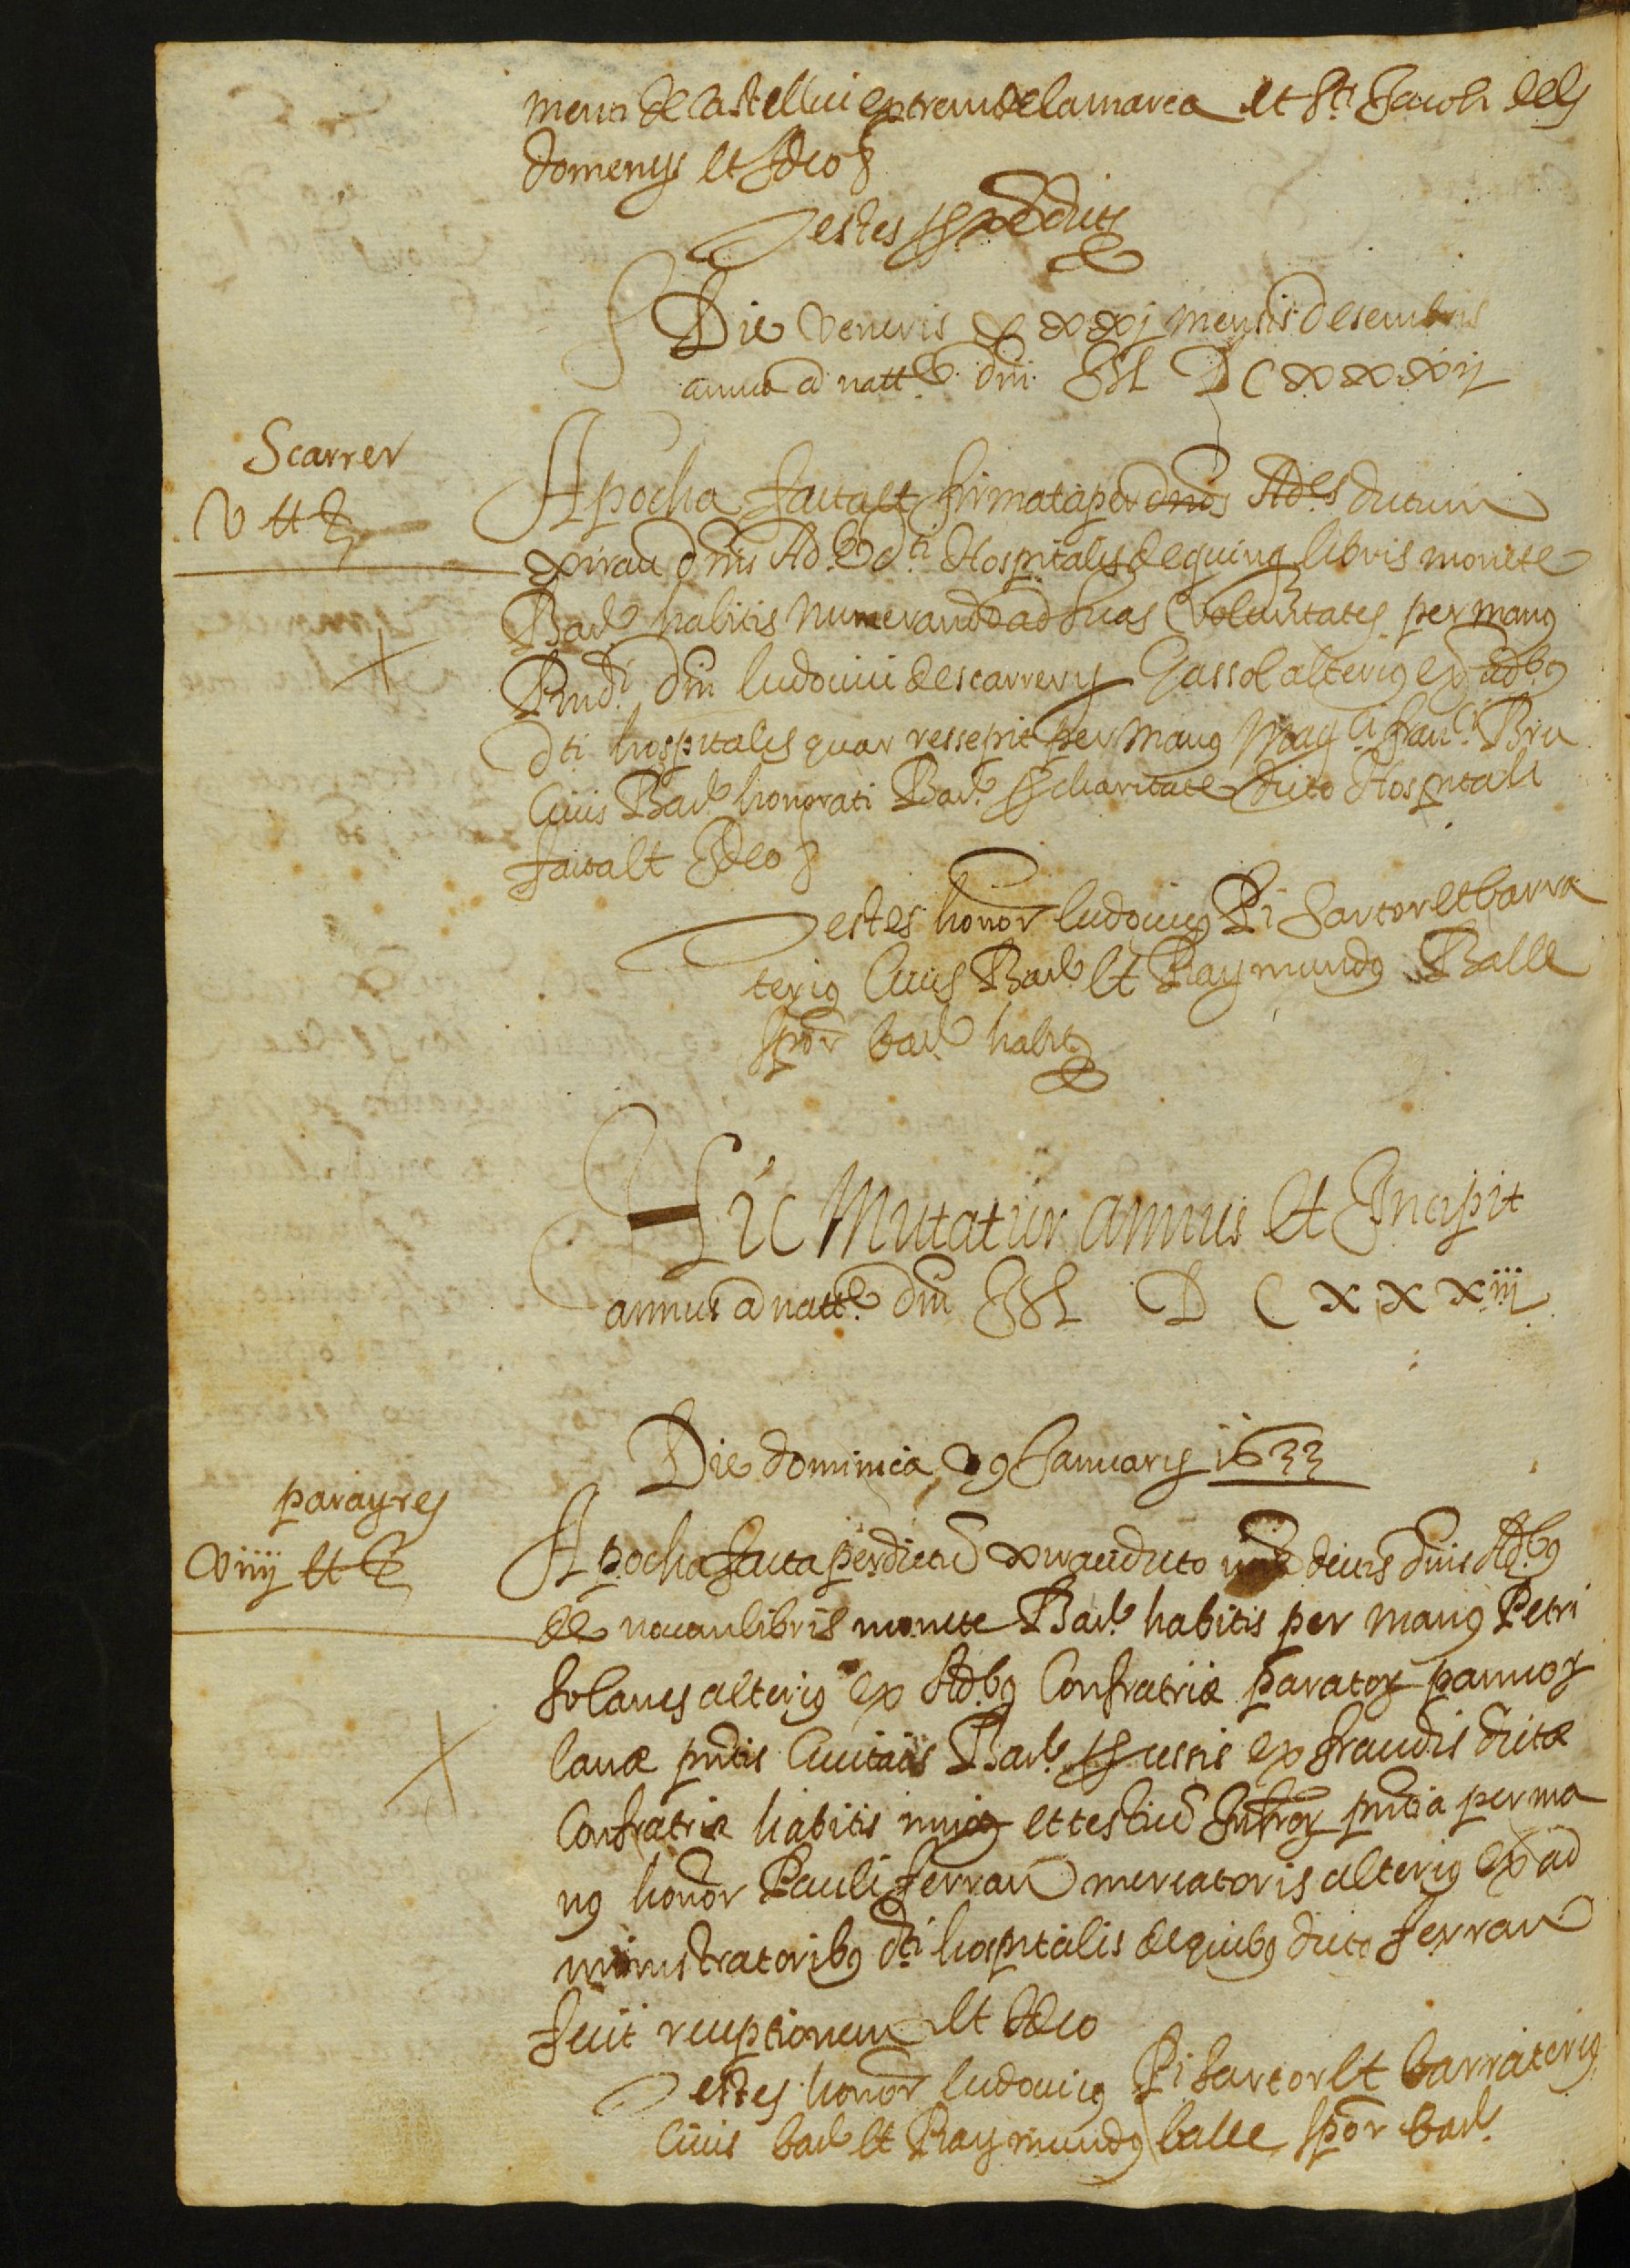 meus de Castellvi extremi de la marca et Sti Jacobi dels
domenys et Ideo &
Testes sspradicti
Die Veneris xxxj mensis Desembris
anno a natte dni M DCxxxij
Scarrer
V tt
Apocha facta et firmata per dnos Ades dictum
xirau dnis Ade dti Hospitalis de quinq libris monete
Barne habitis numerando ad suas voluntates per manq
Rndi dni ludovici descarrery Gassol alteriq ex Adbq
dti hospitalis quas ressepit per manq Magci franci Bru
Civis Barne honorati Barne charitate dicto Hospitali
facta et Ideo &
Testes honor ludovicq Pi Sartor et barra
teriq Civis Barne et Raymundq Balle
sspor barne habits
Hic Mutatur annus et Incipit
annus a natte dni M D C xxxiij
Die dominica 9 Januarij 1633
parayres
Viiij tt
Apocha facta per dictu xirau dicto dictis dnis Adbq
de novem libris monete Barne habitis per manq Petri
solanes alteriq ex Adbq Confratriæ parator pannor
lanæ pntis Civitatis Barne ex fraudis dictæ
Confratriæ habitis et testiu Infror pntia per ma
nq honor Pauli ferran mercatoris alteriq ex ad
ministratoribq dti hospitalis de quibq dicto ferran
fecit receptionem et Ideo
Testes honor ludovicq Pi Sartor et barrateriq
Civis barne et Raymundq balle sspor barne